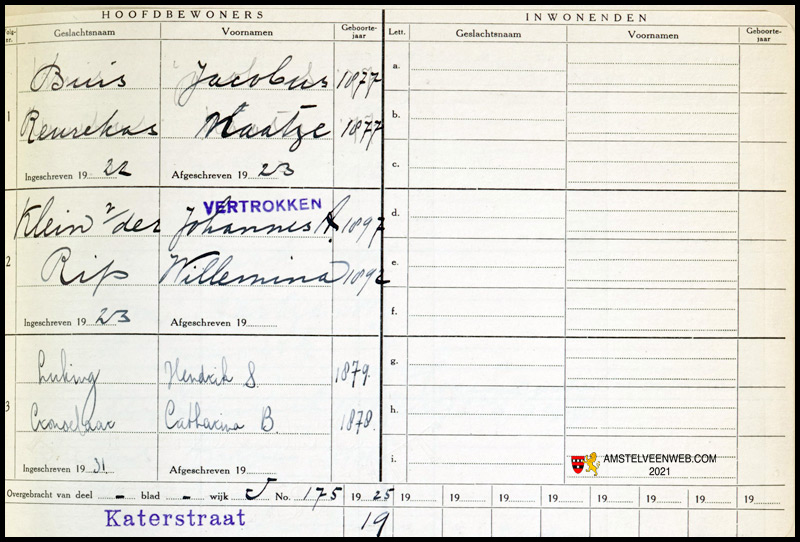 HOOFDBEWONERS INWONENDEN
Volg-nr. Geslachtsnaam Voornamen Geboorte-jaar Lett. Geslachtsnaam Voornamen Geboorte-jaar
Buis Jacobus 1877 a.
1 Reurekas Maatze 1877 b.
Ingeschreven 19 22 Afgeschreven 19 23 c.
VERTROKKEN
Klein v/der Johannes A. 1897 d.
2 Rip Willemina 1892 e.
Ingeschreven 19 23 Afgeschreven 19 f.
Luking Hendrik S. 1879. g.
3 Catharina B. 1878. h.
Ingeschreven 19 31 Afgeschreven 19 i.
AMSTELVEENWEB.COM
2021
Overgebracht van deel - blad - wijk J No. 175 19 25 19 19 19 19 19 19 19 19
Katerstraat 19